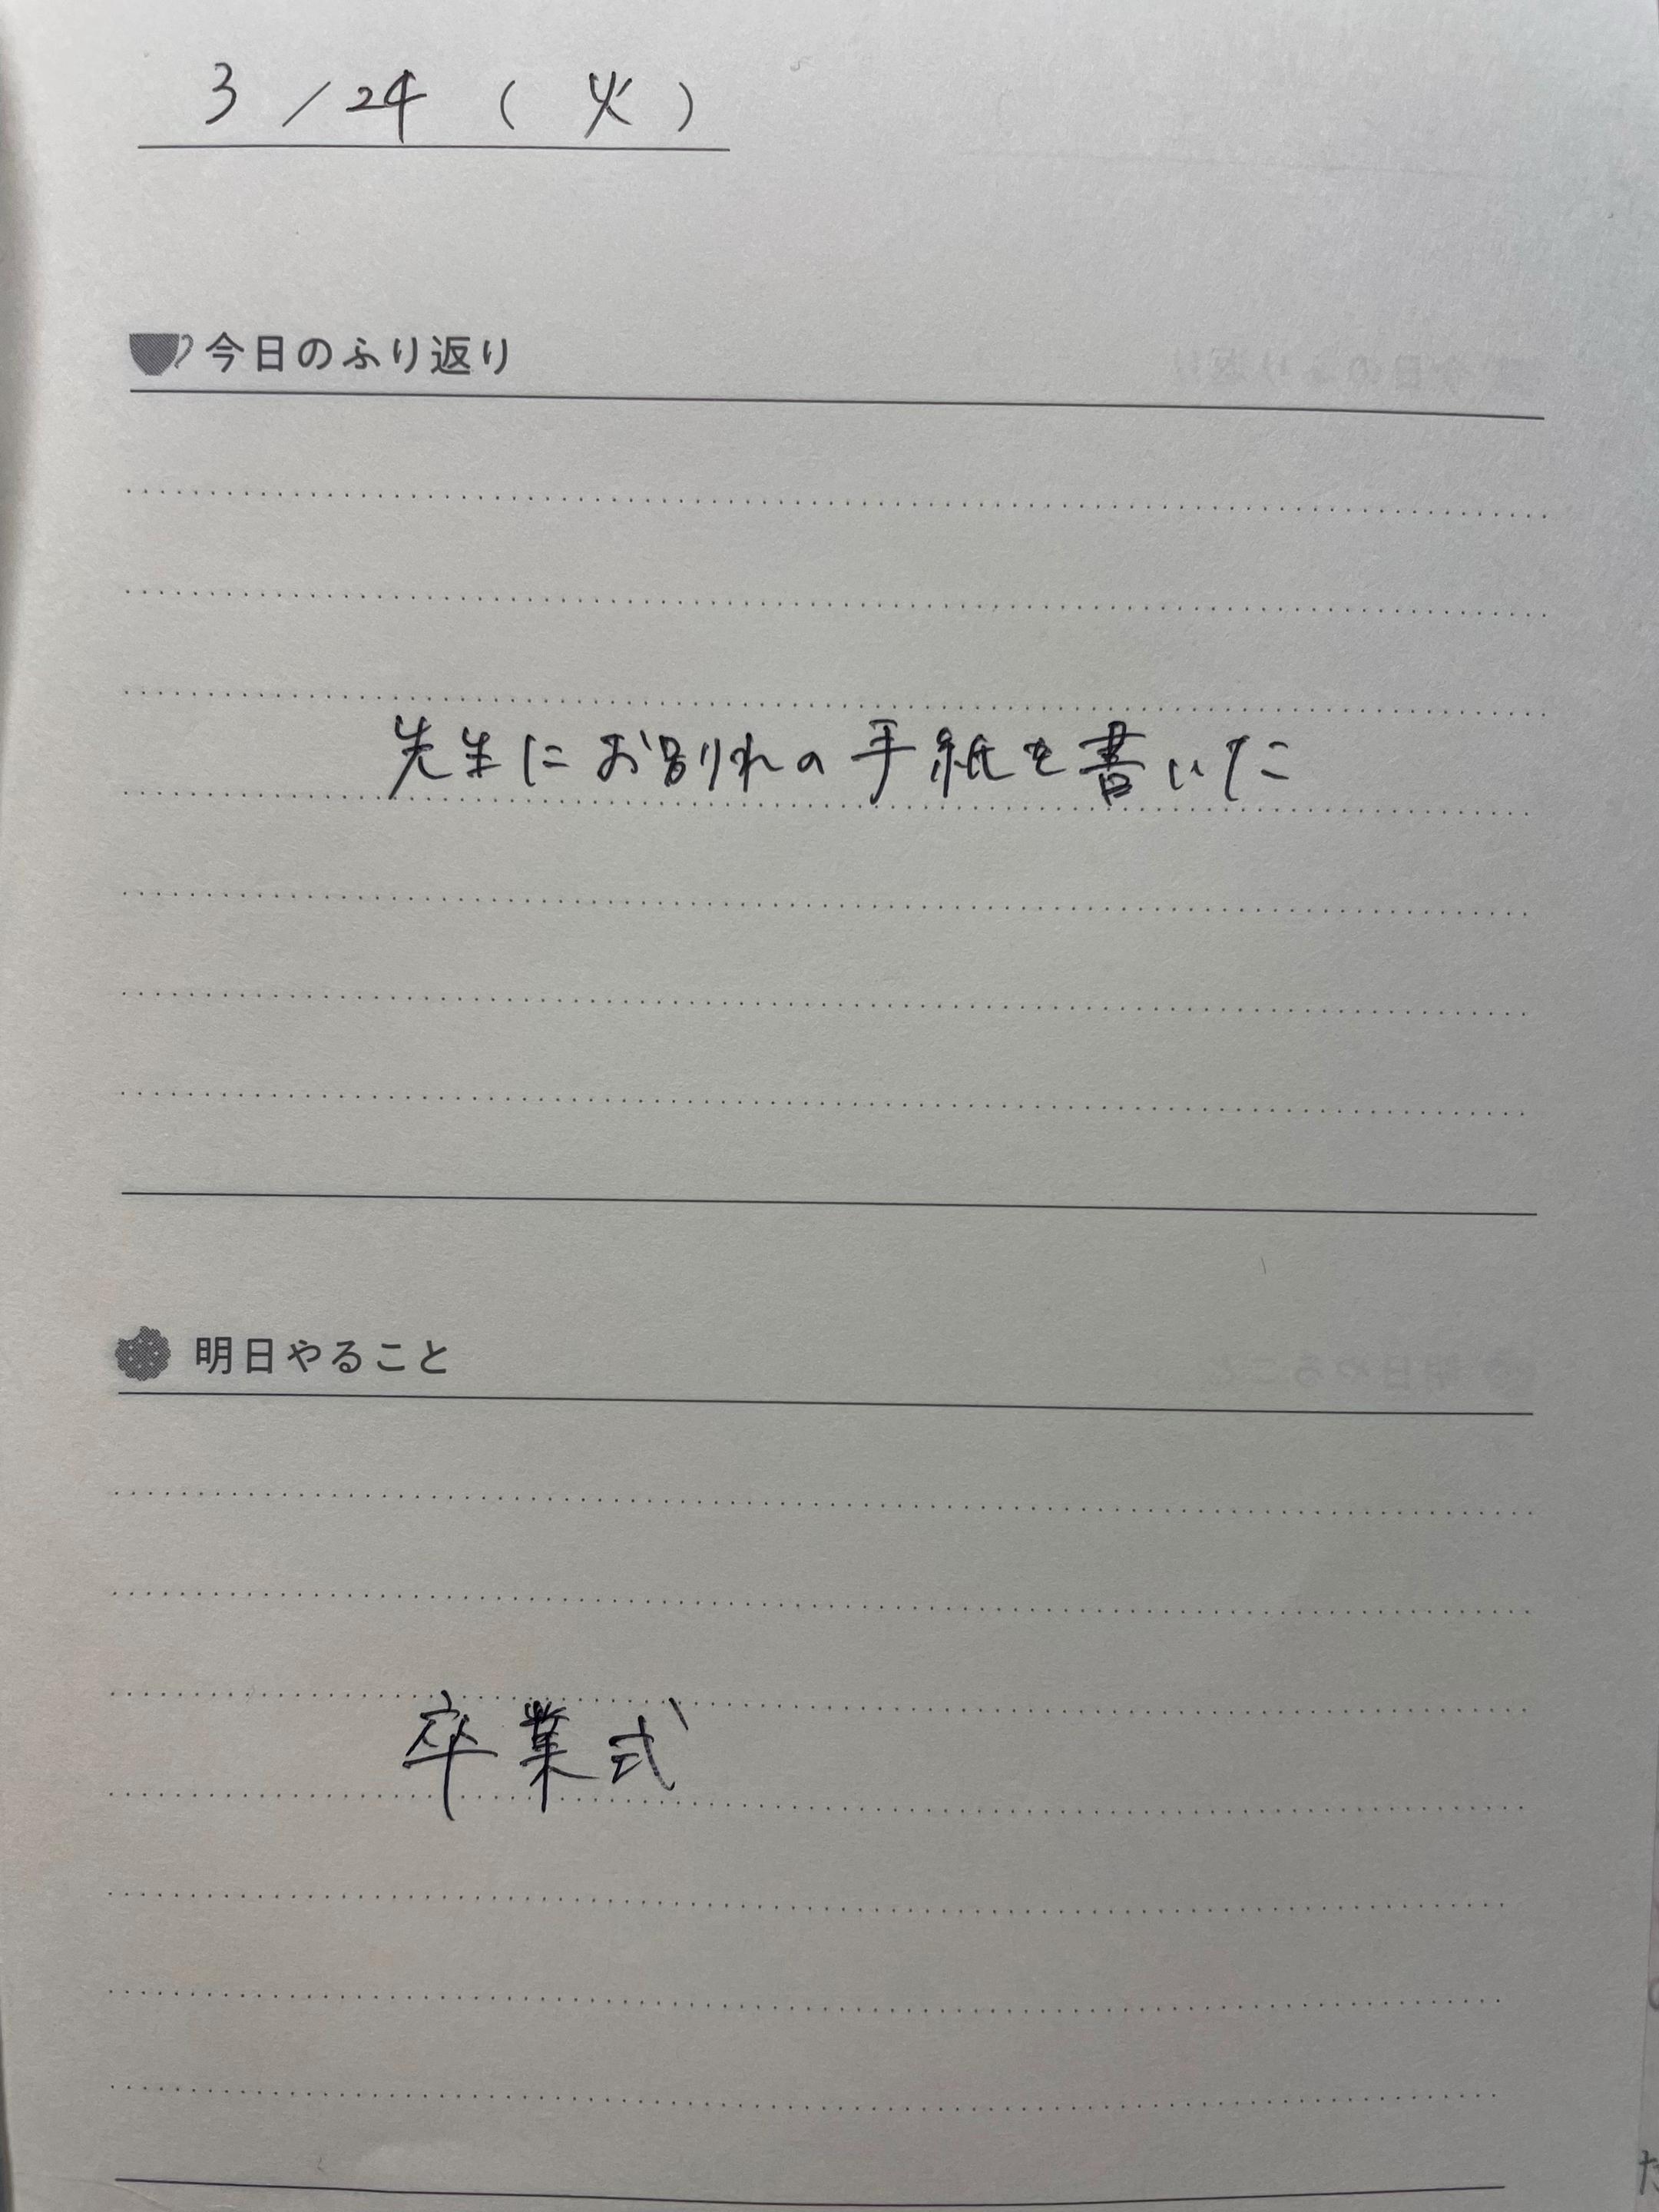 3/24(火)
今日のふり返り
先生にお別れの手紙を書いた
明日やること
卒業式
た